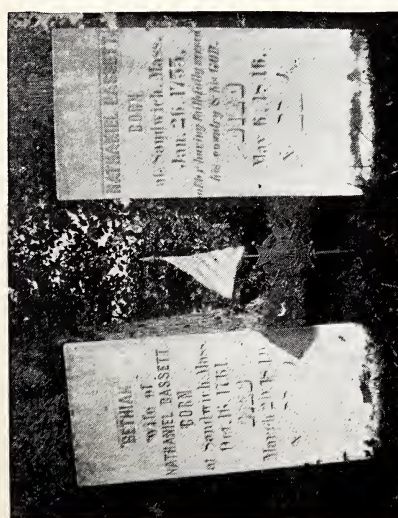 NATHANIEL BASSETT
BORN
at Sandwich, Mass.
Jan. 26, 1755,
after having faithfully served
his country & his GOD.
DIED
May 6, 1816.
BETHIAH
Wife of
NATHANIEL BASSETT
BORN
at Sandwich, Mass.
Oct. 16, 1761.
DIED
March